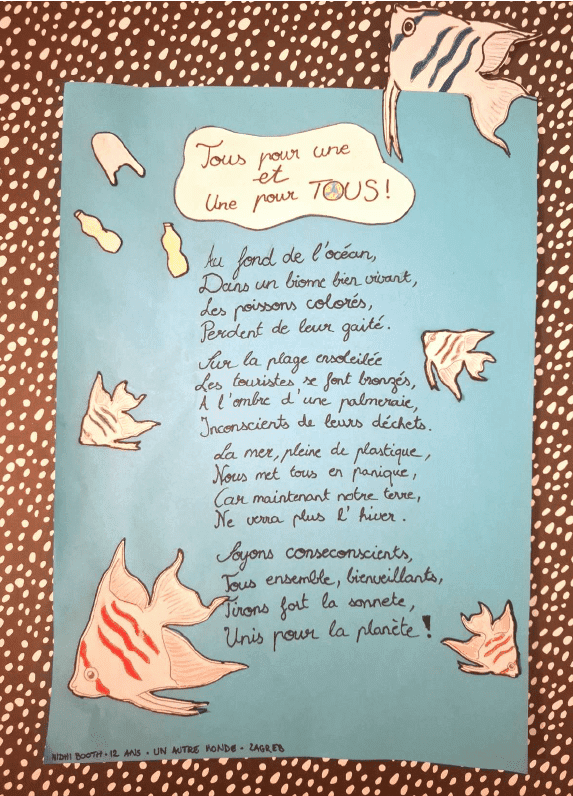 Tous pour une
et
Une pour TOUS!
Au fond de l'océan,
Dans un biome bien vivant,
Les poissons colorés,
Perdent de leur gaité.
Sur la plage ensoleilée
Les touristes se font bronzés,
A l'ombre d'une palmeraie,
Inconscients de leurs déchets.
La mer, pleine de plastique,
Nous met tous en panique,
Car maintenant notre terre,
Ne verra plus l'hiver.
Soyons conseconscients,
Tous ensemble, bienveillants,
Tirons fort la sonnete,
Unis pour la planète!
NIDHI BOOTH • 12 ANS • UN AUTRE MONDE • ZAGREB